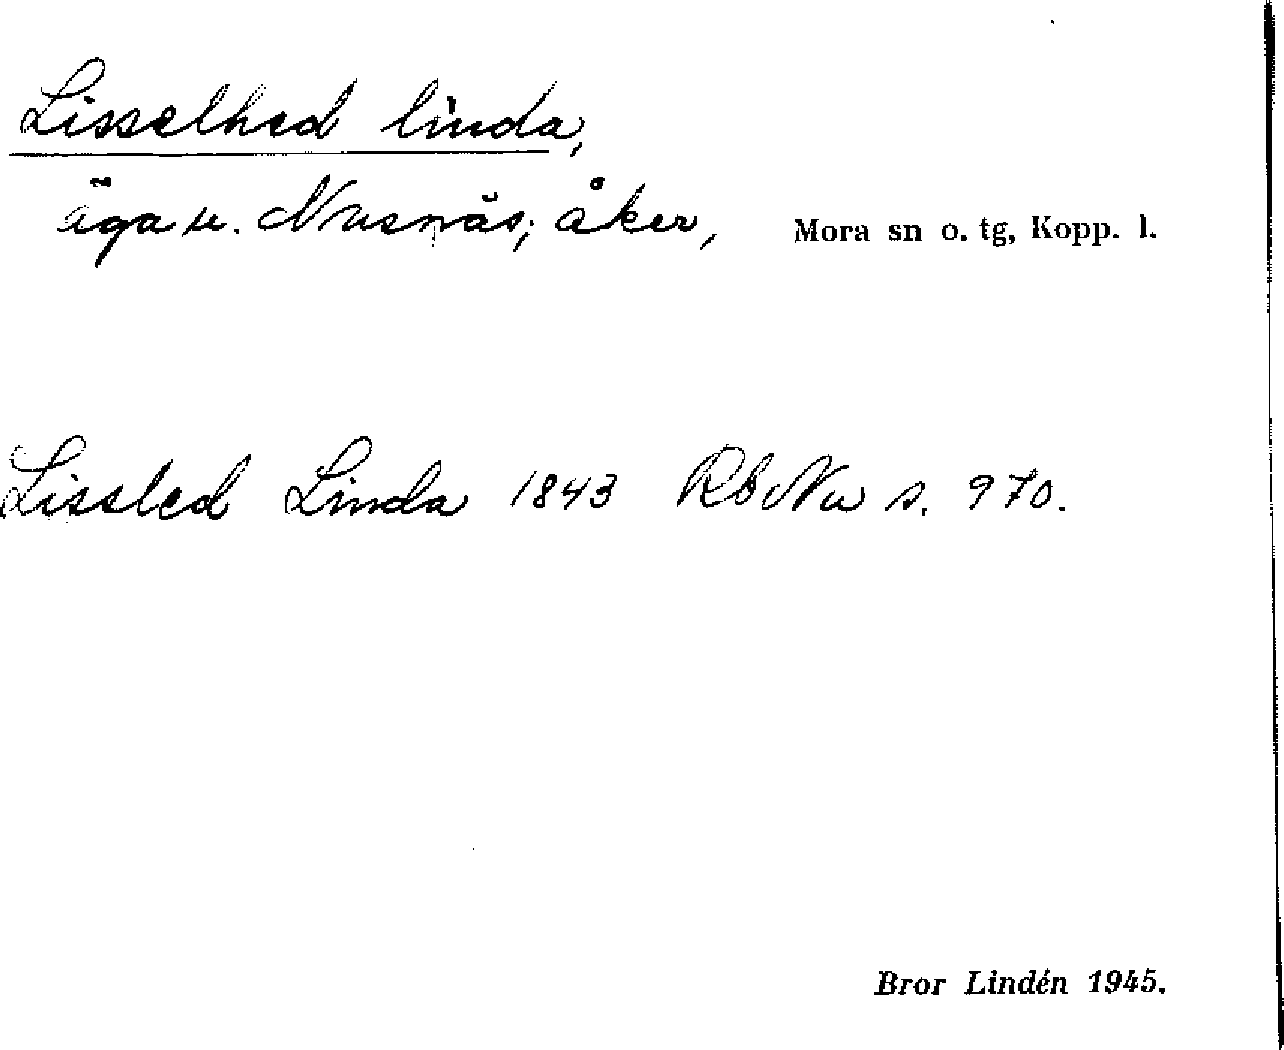 Lisselhed linda,
äga u. Nusnäs; åker, Mora sn o. tg, Kopp. l.
Lissled Linda 1843 Rb Nu s. 970.
Bror Lindén 1945.